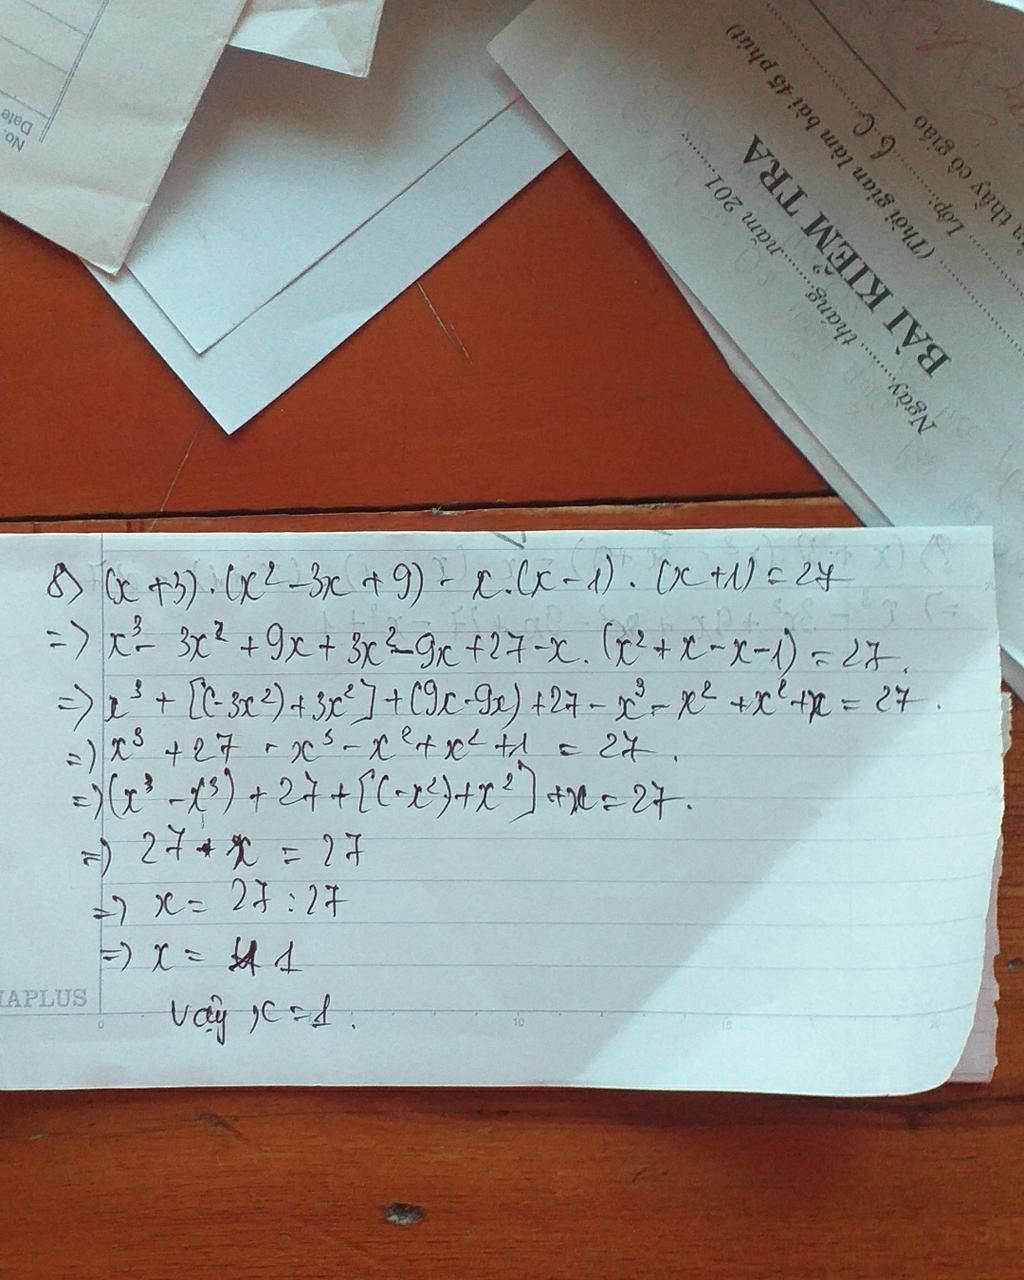 No.
Date
Ngày ........ tháng ........ năm 201........
BÀI KIỂM TRA
(Thời gian làm bài 45 phút)
Lớp: 6 C
thầy cô giáo
8) (x + 3) . (x² - 3x + 9) - x . (x - 1) . (x + 1) = 27
=> x³ - 3x² + 9x + 3x² - 9x + 27 - x . (x² + x - x - 1) = 27.
=> x³ + [(-3x²) + 3x²] + (9x - 9x) + 27 - x³ - x² + x² + x = 27.
=> x³ + 27 - x³ - x² + x² + 1 = 27.
=> (x³ - x³) + 27 + [(-x²) + x²] + x = 27.
=> 27 + x = 27
=> x = 27 : 27
=> x = 1
Vậy x = 1.
APLUS
0 10 15 20